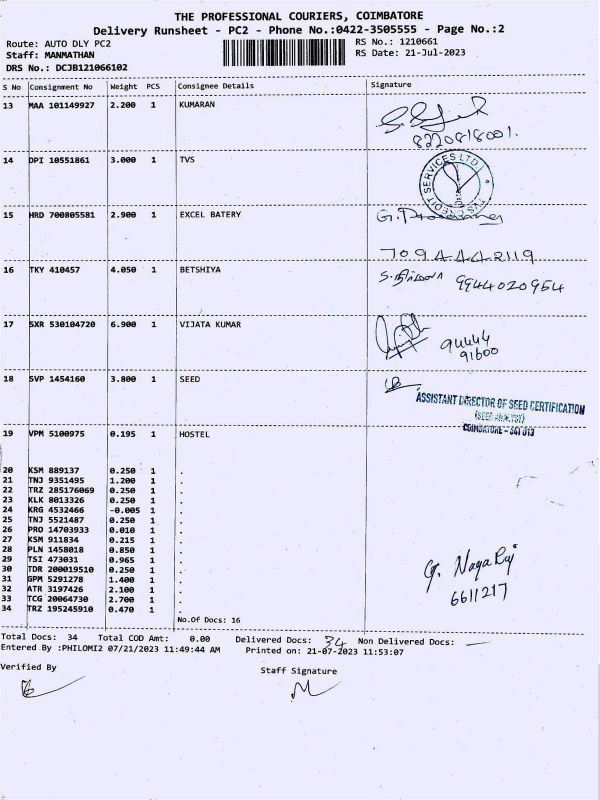 THE PROFESSIONAL COURIERS, COIMBATORE
Delivery Runsheet - PC2 - Phone No.:0422-3505555 - Page No.:2
Route: AUTO DLY PC2 RS No.: 1210661
Staff: MANMATHAN RS Date: 21-Jul-2023
DRS No.: DCJB121066102
S No Consignment No Weight PCS Consignee Details Signature
13 MAA 101149927 2.200 1 KUMARAN
8220818001.
14 DPI 10551861 3.000 1 TVS
TVS CREDIT SERVICES LTD.
15 HRD 700805581 2.900 1 EXCEL BATERY
709 444 2119
16 TKY 410457 4.050 1 BETSHIYA
9944020954
17 SXR 530104720 6.900 1 VIJATA KUMAR
94444
91600
18 SVP 1454160 3.800 1 SEED
ASSISTANT DIRECTOR OF SEED CERTIFICATION
(SEED ANALYST)
COIMBATORE - 641 013
19 VPM 5100975 0.195 1 HOSTEL
20 KSM 889137 0.250 1 .
21 TNJ 9351495 1.200 1 .
22 TRZ 285176069 0.250 1 .
23 KLK 8013326 0.250 1 .
24 KRG 4532466 -0.005 1 .
25 TNJ 5521487 0.250 1 .
26 PRO 14703933 0.010 1 .
27 KSM 911834 0.215 1 .
28 PLN 1458018 0.850 1 .
29 TSI 473031 0.965 1 .
30 TDR 200019510 0.250 1 .
31 GPM 5291278 1.400 1 .
32 ATR 3197426 2.100 1 .
33 TCG 20064730 2.700 1 .
34 TRZ 195245910 0.470 1 .
G. Naga Raj
6611217
No.Of Docs: 16
Total Docs: 34 Total COD Amt: 0.00 Delivered Docs: 34 Non Delivered Docs: —
Entered By :PHILOMI2 07/21/2023 11:49:44 AM Printed on: 21-07-2023 11:53:07
Verified By Staff Signature